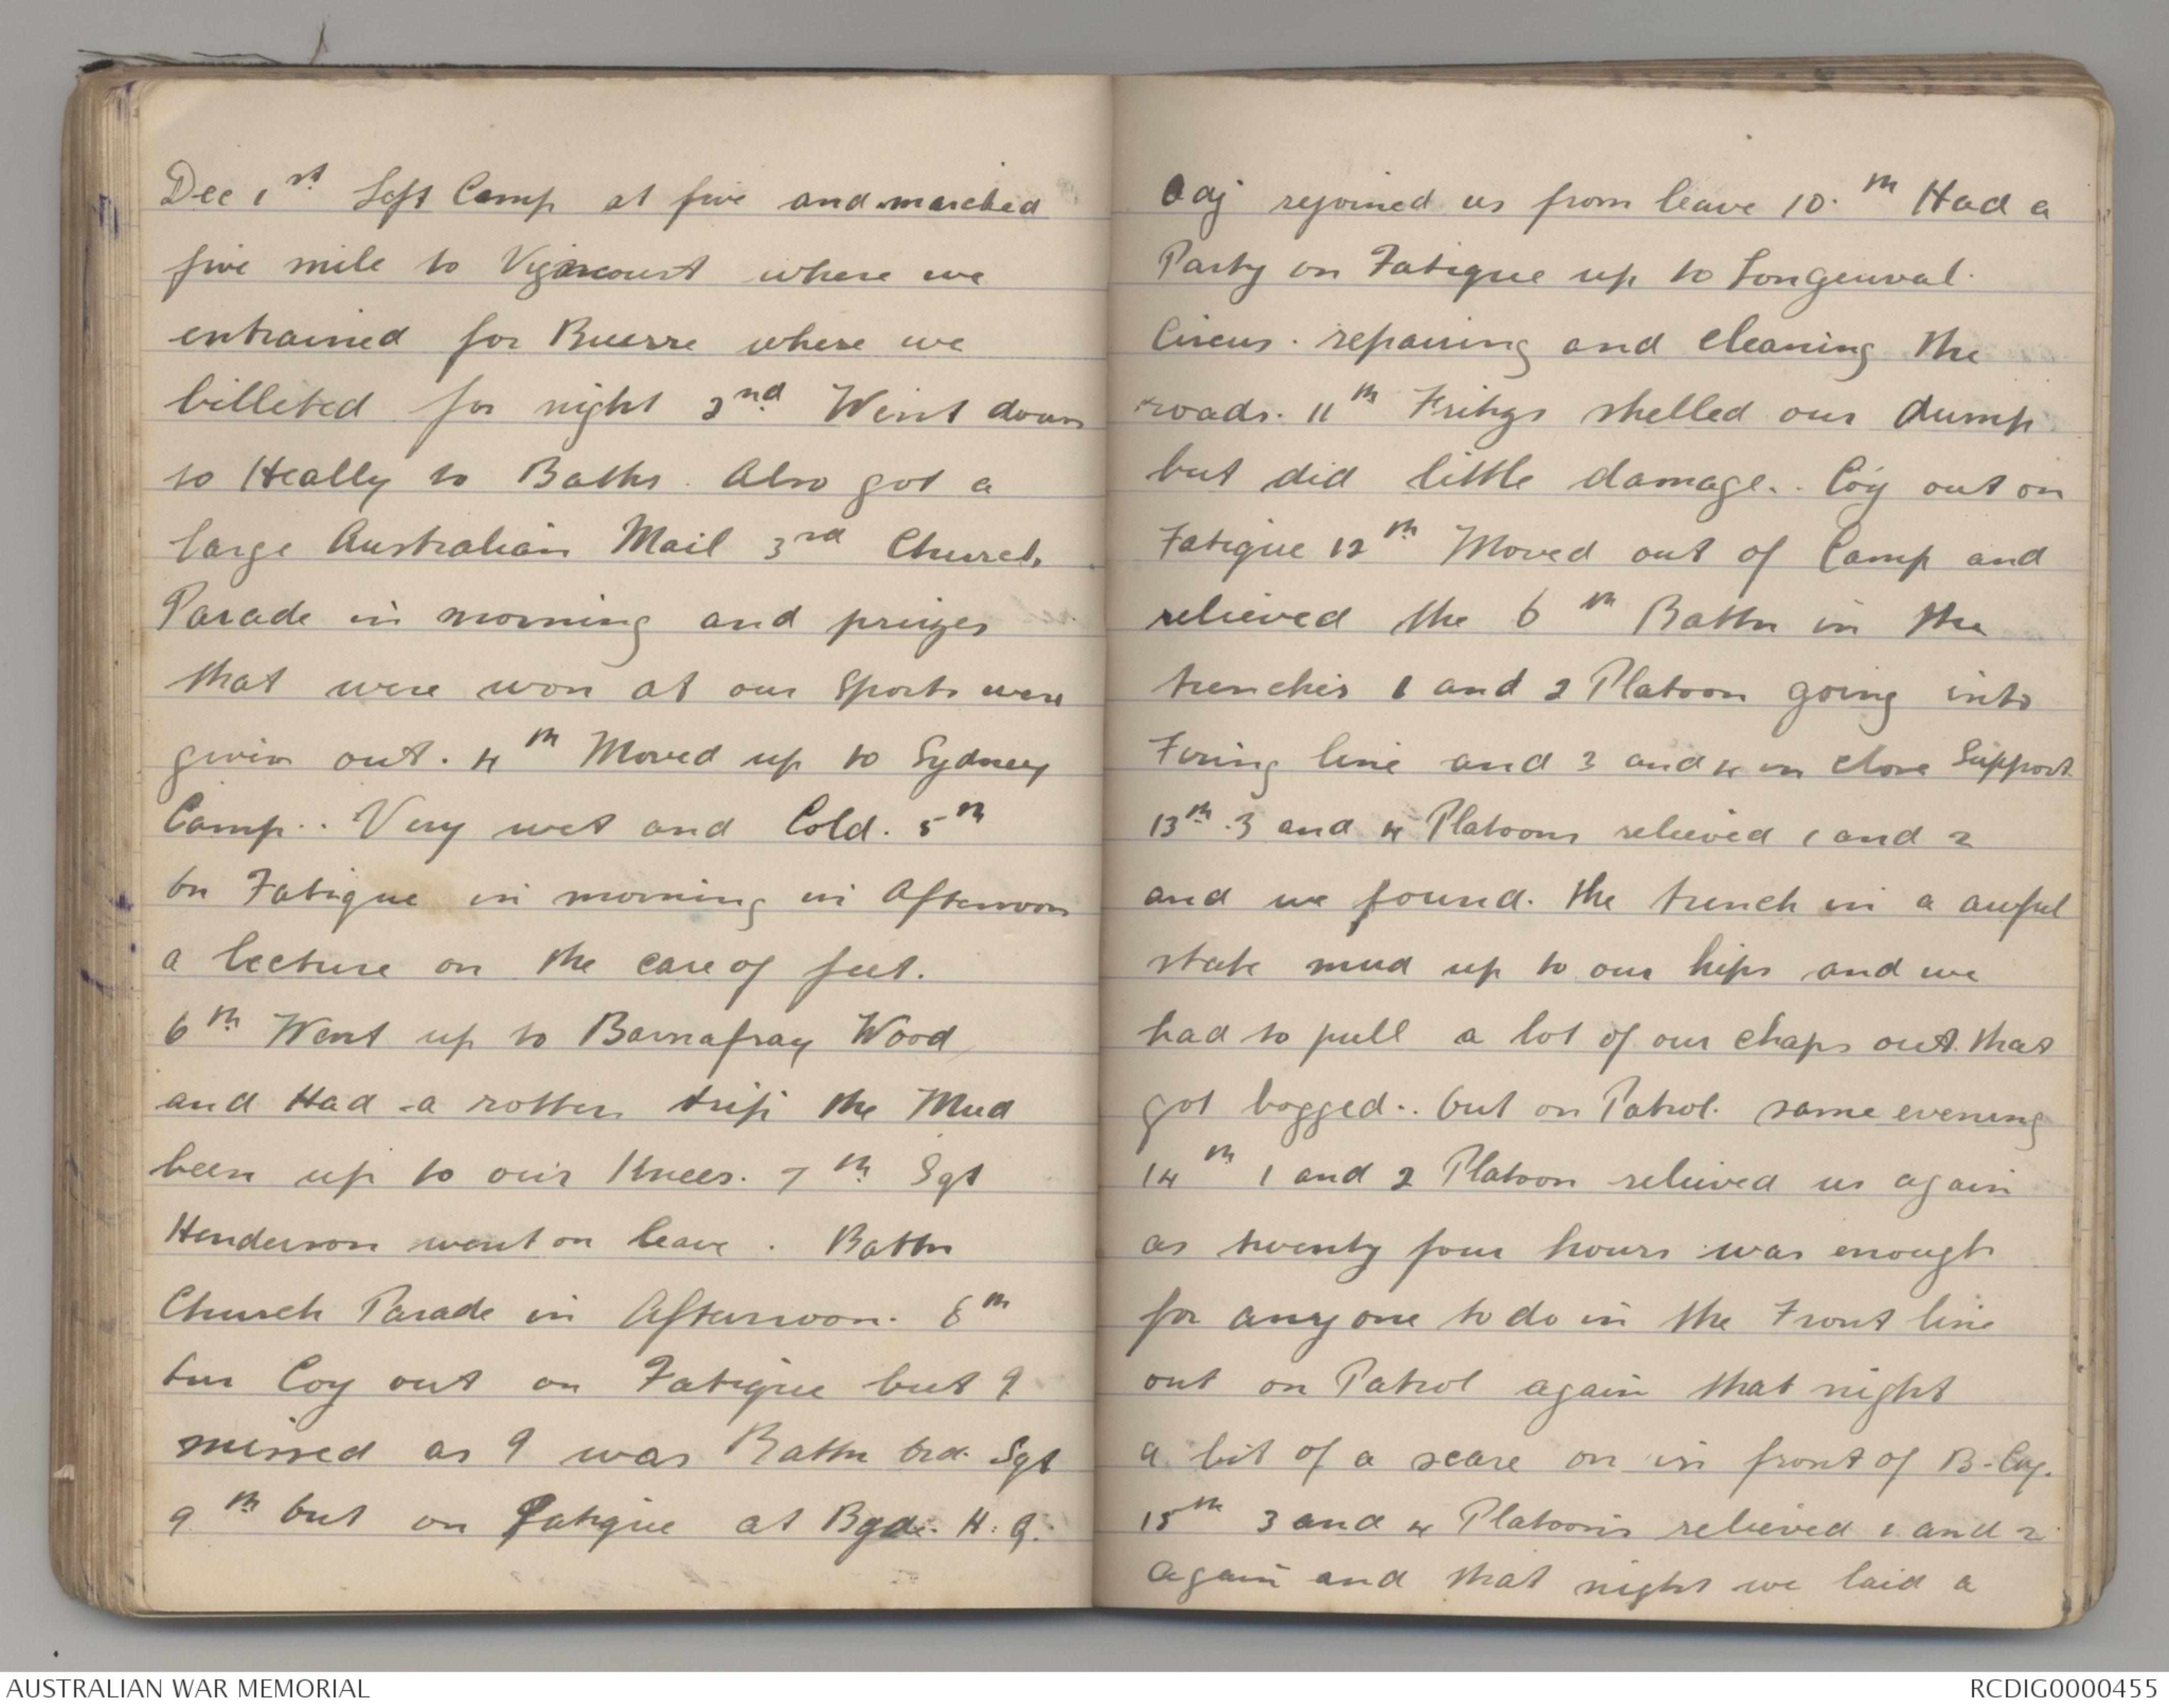 Dec 1st Left Camp at five and marched
five mile to Vignacourt where we
entrained for Buerre where we
billeted for night 2nd Went down
to Heally to Baths. Also got a
large Australian Mail 3rd Church
Parade in morning and prizes
that were won at our Sports were
given out. 4th Moved up to Sydney
Camp.. Very wet and Cold. 5th
On Fatigue in morning in Afternoon
a lecture on the care of feet.
6th Went up to Barnafray Wood
and Had a rotten trip the Mud
been up to our Knees. 7th Sgt
Henderson went on leave. Battn
Church Parade in Afternoon. 8th
Our Coy out on Fatigue but I
missed as I was Battn Ord. Sgt
9th Out on Fatigue at Bgde. H.Q.
Adj rejoined us from leave 10.th Had a
Party on Fatigue up to Longeuval.
Circus. repairing and cleaning the
roads. 11th Fritzs shelled our dump
but did little damage.. Coy out on
Fatigue 12th Moved out of Camp and
relieved the 6th Battn in the
trenches 1 and 2 Platoon going into
Firing line and 3 and 4 in close Support
13th. 3 and 4 Platoons relieved 1 and 2
and we found. the trench in a awful
state mud up to our hips and we
had to pull a lot of our chaps out that
got bogged.. Out on Patrol. same evening
14th 1 and 2 Platoon relieved us again
as twenty four hours was enough
for anyone to do in the Front line
out on Patrol again that night
a bit of a scare on in front of B-Coy.
15th 3 and 4 Platoons relieved 1 and 2
again and that night we laid a
AUSTRALIAN WAR MEMORIAL
RCDIG0000455